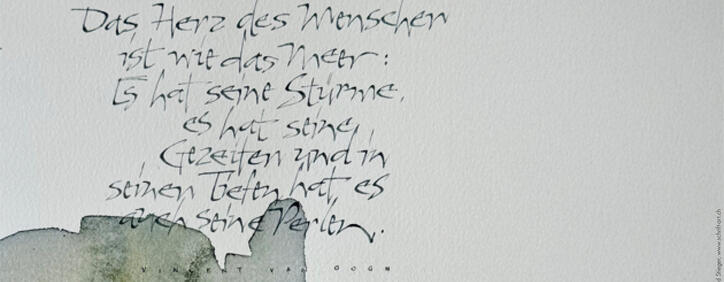 Das Herz des Menschen
ist wie das Meer:
Es hat seine Stürme,
es hat seine
Gezeiten und in
seinen Tiefen hat es
auch seine Perlen.
VINCENT VAN GOGH
Stieger, www.schriftart.ch